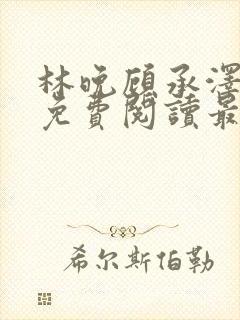 林晚顾承泽
免費閱讀最
希尔斯伯勒